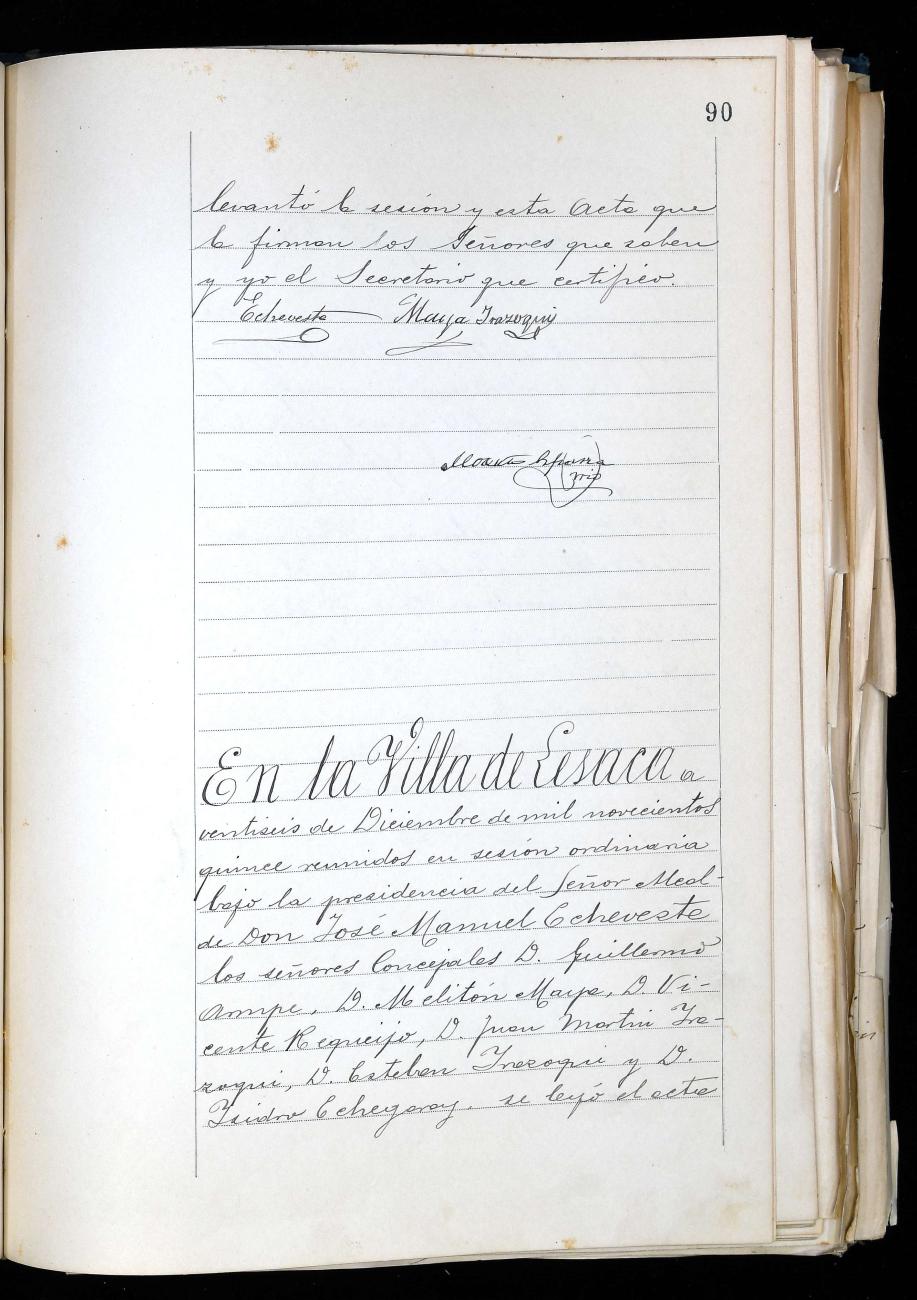 90
levantó la sesión y esta Acta que
la firman los Señores que saben
y yo el Secretario que certifico.
Echeveste Maya Irazoqui
En la Villa de Lesaca a
ventiseis de Diciembre de mil novecientos
quince reunidos en sesión ordinaria
bajo la presidencia del Señor Alcal-
de Don José Manuel Echeveste
los señores Concejales D. Guillermo
D. Melitón Maya, D. Vi-
cente Requeijo, D. Juan Martin Ira-
zoqui, D. Esteban Irazoqui y D.
Isidro Echegaray. se leyó el acta